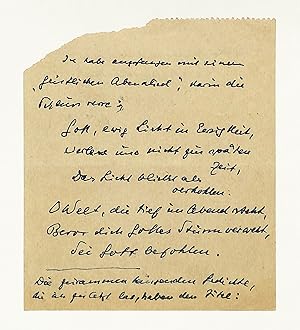 Ich habe angefangen mit einem
geistlichen Abendlied, darin die
Gott, ewig Licht in Ewigkeit,
Verlass uns nicht zur späten
Zeit,
Das Licht bleibt als
verhohlen.
O Welt, die tief im Abend steht,
Bevor dich Gottes Sturm verweht,
Sei Gott befohlen.
Die zusammen Gedichte,
die ich zuletzt las, haben den Titel: